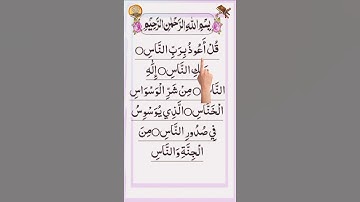 بِسْمِ اللّٰهِ الرَّحْمٰنِ الرَّحِيْمِ
قُلْ أَعُوذُ بِرَبِّ النَّاسِ○
النَّاسِ○ إِلَٰهِ
النَّاسِ○ مِنْ شَرِّ الْوَسْوَاسِ
الْخَنَّاسِ○ الَّذِي يُوَسْوِسُ
فِي صُدُورِ النَّاسِ○ مِنَ
الْجِنَّةِ وَالنَّاسِ